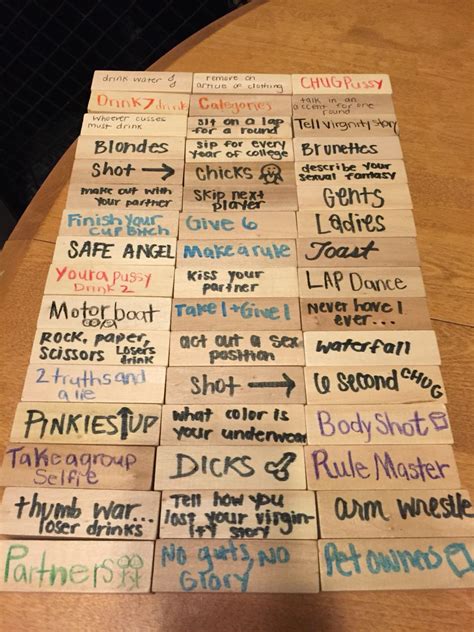 drink water
remove an article of clothing
CHUG Pussy
Drink 7 drink
Categories
talk in an accent for one round
Whoever cusses must drink
Sit on a lap for a round
Tell virgnity story
Blondes
sip for every year of college
Brunettes
Shot
CHICKS
describe your sexual fantasy
make out with your partner
Skip next player
Gents
Finish Your cup Bitch
Give 6
Ladies
SAFE ANGEL
Make a rule
Toast
Your a pussy Drink 2
Kiss your partner
LAP Dance
Motorboat
Take 1 + Give 1
Never have I ever...
ROCK, PAPER, SCISSORS Losers drink
act out a sex position
Waterfall
2 truths and a lie
Shot
6 second CHUG
PINKIES UP
what color is your underwear
Body Shot
Take a group Selfie
DICKS
Rule Master
thumb war... loser drinks
Tell how you lost your virginity story
arm wrestle
Partners
No guts, No Glory
Pet owners